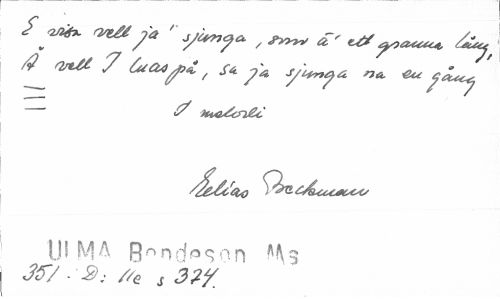 E visa vell ja' sjunga, som ä' ett granna lång,
Å vell I luas på, sa ja sjunga na en gång
I melodi
Eelias Beckman
ULMA Bondeson Ms
351. D: 11e s 374.